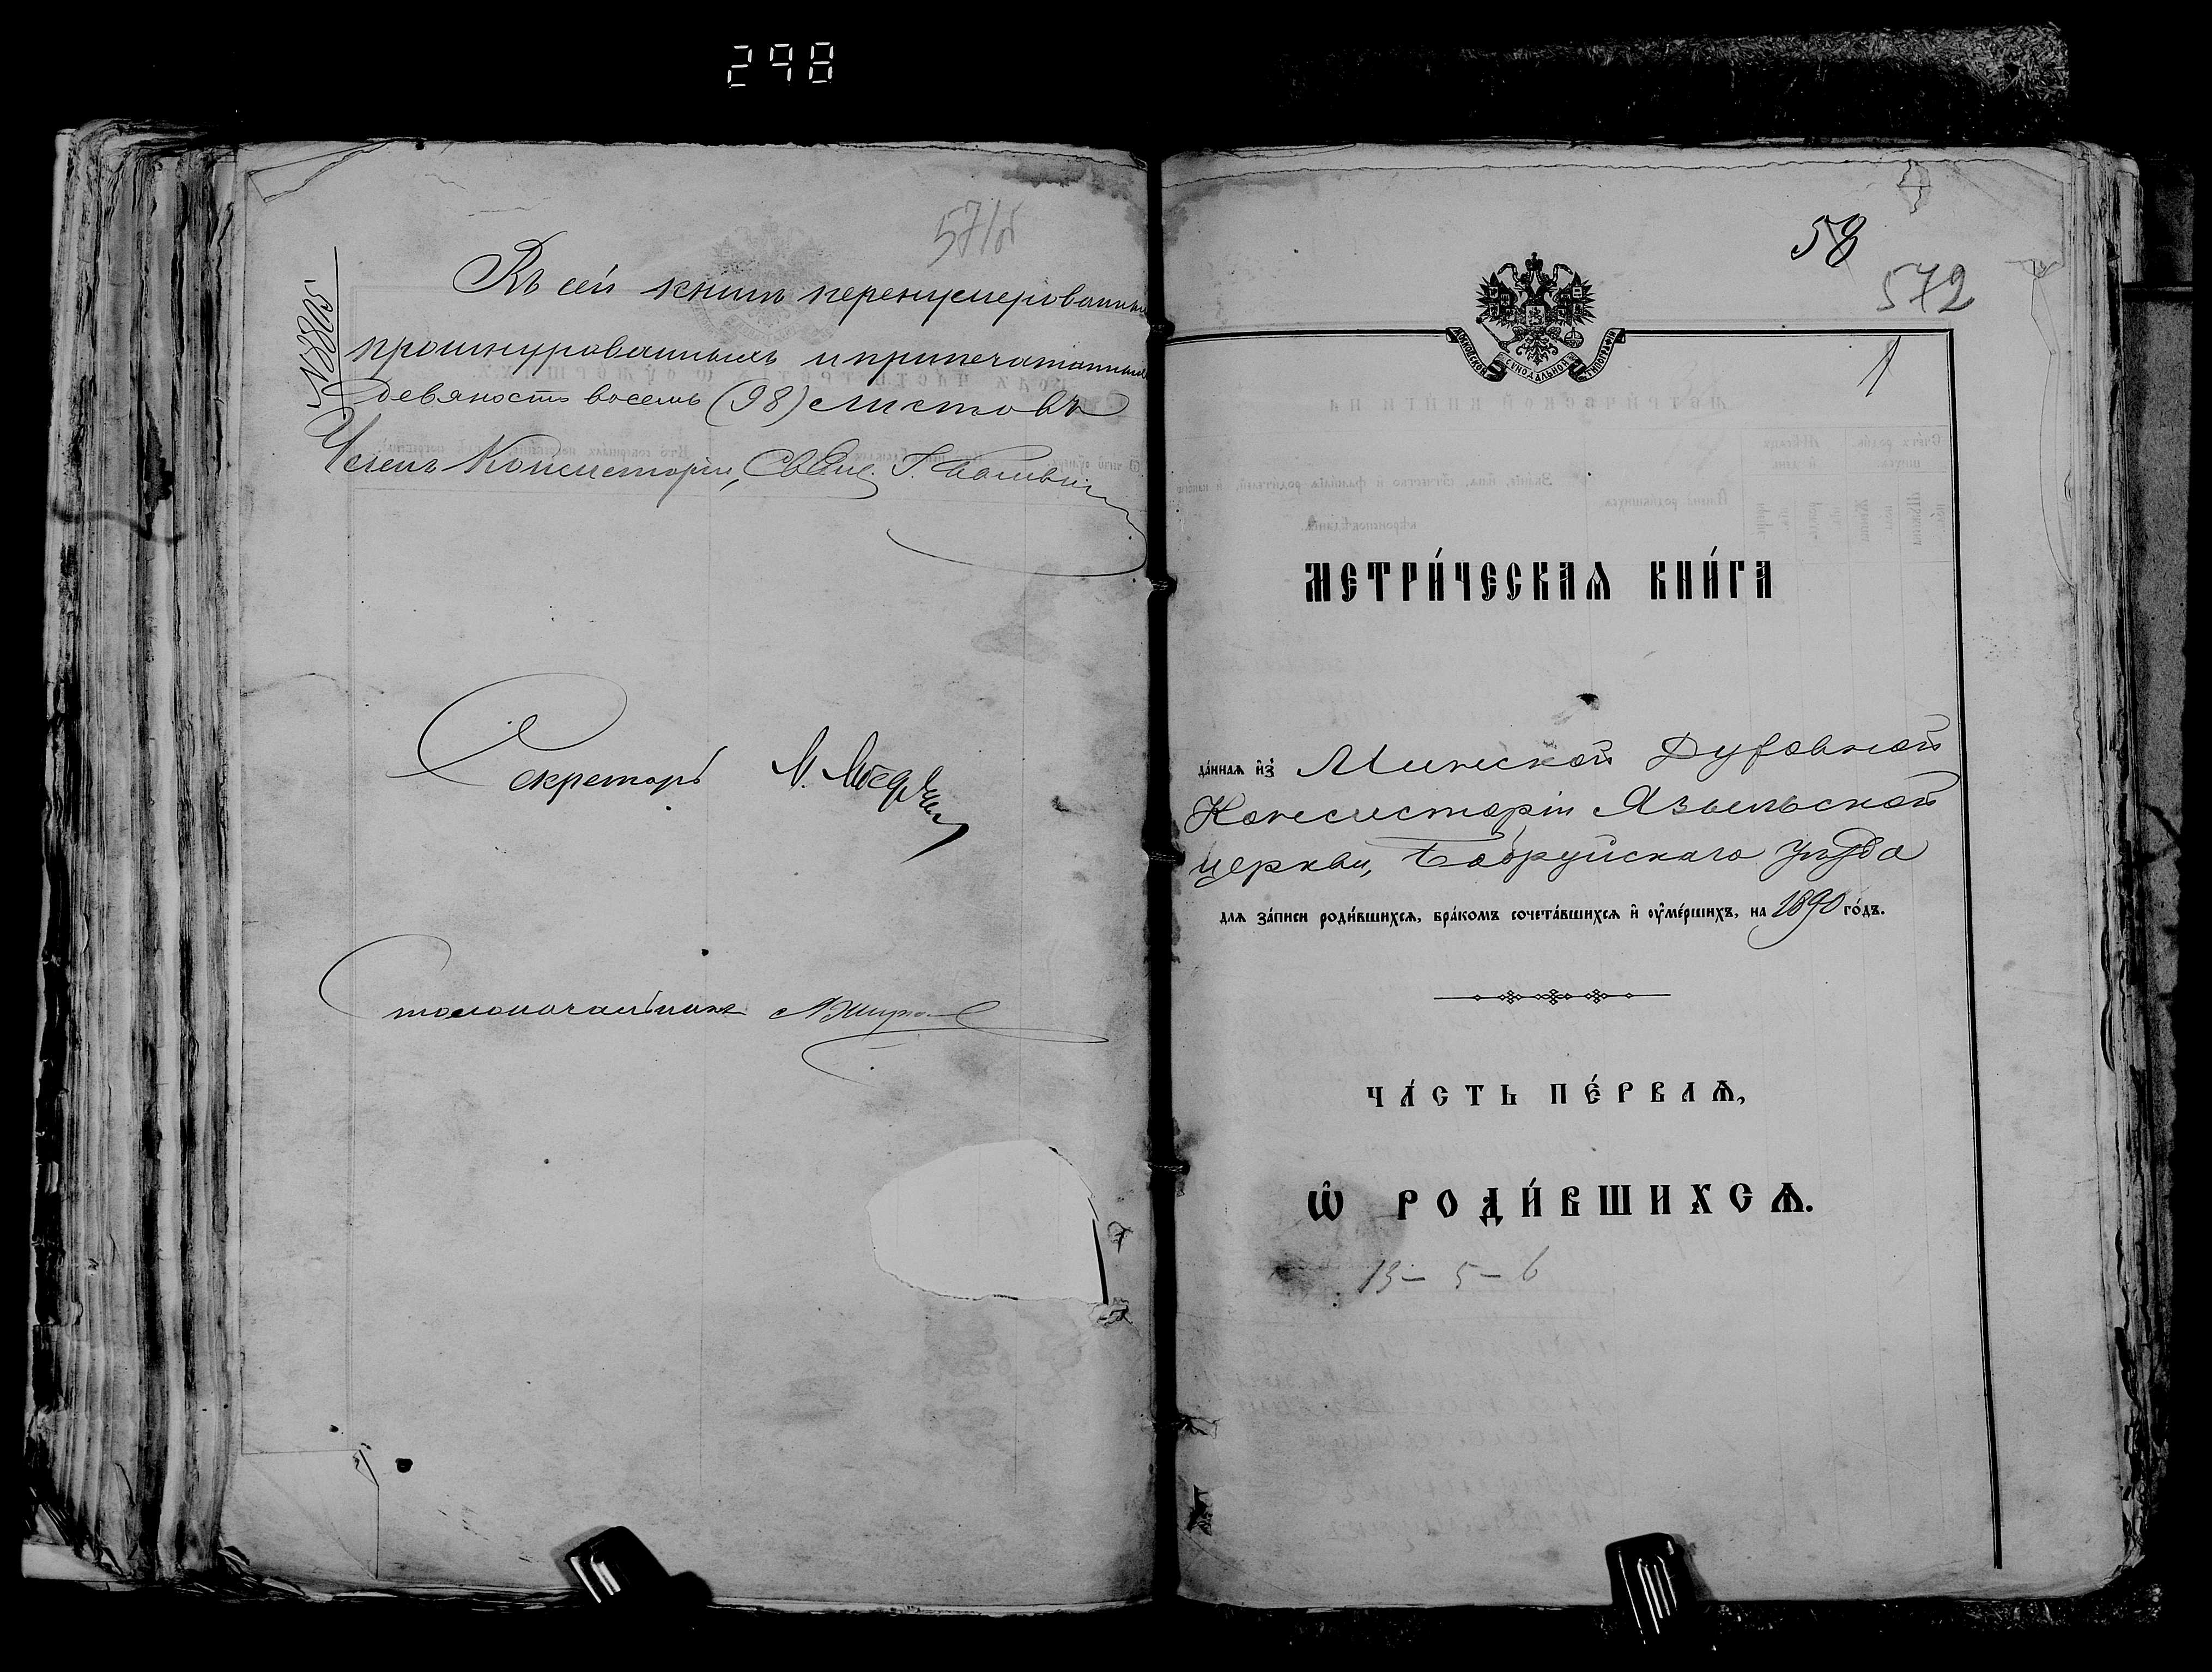 298
571б
№ 8805
Въ сей книгѣ перенумерованныхъ
прошнурованныхъ и припечатанныхъ
девяносто восемь (98) листовъ
Членъ Консисторіи, Свящ.
Секретарь
Столоначальникъ
58
572
1
МОСКОВСКОЙ СѴНОДАЛЬНОЙ ТИПОГРАФІИ
МЕТРИ́ЧЕСКАѦ КНИ́ГА
да́ннаѧ и҆з̾ Минской Духовной
Консисторіи Языльской
церкви, Бобруйскаго уѣзда
длѧ за́писи роди́вшихсѧ, бра́комъ сочета́вшихсѧ и҆ ѹ҆ме́ршихъ, на 1890 го́дъ.
ЧА́СТЬ ПЕ́РВАѦ,
Ѡ҆ РОДИ́ВШИХСѦ.
13 – 5 – 6